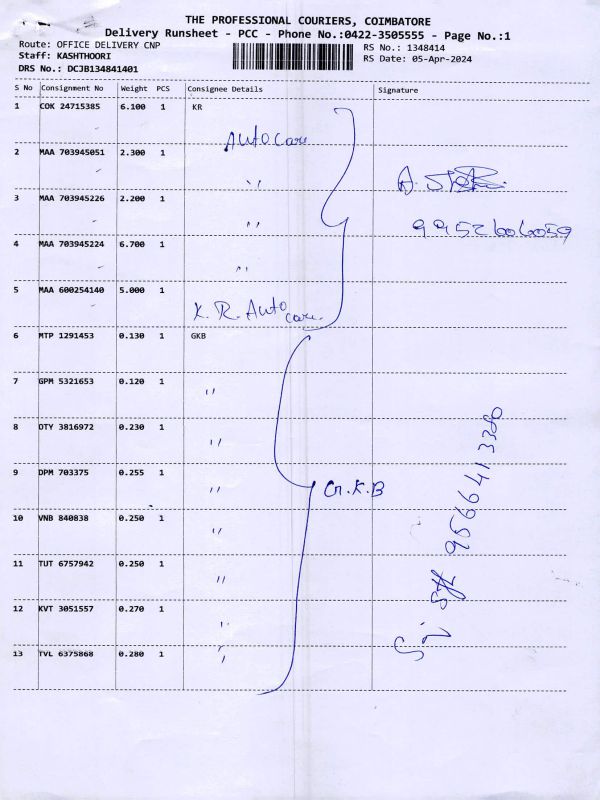 THE PROFESSIONAL COURIERS, COIMBATORE
Delivery Runsheet - PCC - Phone No.:0422-3505555 - Page No.:1
Route: OFFICE DELIVERY CNP RS No.: 1348414
Staff: KASHTHOORI RS Date: 05-Apr-2024
DRS No.: DCJB134841401
S No Consignment No Weight PCS Consignee Details Signature
1 COK 24715385 6.100 1 KR
Auto care
2 MAA 703945051 2.300 1
"
3 MAA 703945226 2.200 1
"
9952606059
4 MAA 703945224 6.700 1
"
5 MAA 600254140 5.000 1
K. R. Auto care
6 MTP 1291453 0.130 1 GKB
7 GPM 5321653 0.120 1
"
8 DTY 3816972 0.230 1
"
9 DPM 703375 0.255 1
"
G.K.B
10 VNB 840838 0.250 1
"
11 TUT 6757942 0.250 1
"
12 KVT 3051557 0.270 1
"
13 TVL 6375868 0.280 1
"
9566413380